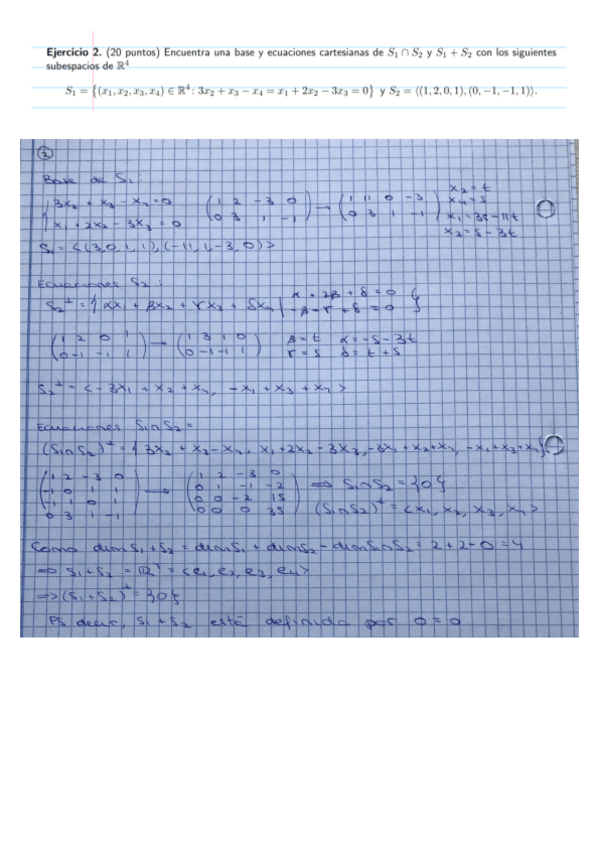 Ejercicio 2. (20 puntos) Encuentra una base y ecuaciones cartesianas de S₁ ∩ S₂ y S₁ + S₂ con los siguientes
subespacios de ℝ⁴
S₁ = {(x₁, x₂, x₃, x₄) ∈ ℝ⁴ : 3x₂ + x₃ − x₄ = x₁ + 2x₂ − 3x₃ = 0} y S₂ = ⟨(1, 2, 0, 1), (0, −1, −1, 1)⟩.
2
Base de S₁:
{ 3x₂ + x₃ - x₄ = 0
x₁ + 2x₂ - 3x₃ = 0
(1 2 -3 0
0 3 1 -1) → (1 11 0 -3
0 3 1 -1)
x₂ = t
x₄ = s
x₁ = 3s - 11t
x₃ = s - 3t
S₁ = <(3,0,1,1), (-11,1,-3,0)>
Ecuaciones S₂:
S₂⊥ = { αx₁ + βx₂ + γx₃ + δx₄ | α + 2β + δ = 0
-β - γ + δ = 0 }
(1 2 0 1
0 -1 -1 1) → (1 3 1 0
0 -1 -1 1)
β = t α = -s - 3t
γ = s δ = t + s
S₂⊥ = < -3x₁ + x₂ + x₄, -x₁ + x₃ + x₄ >
Ecuaciones S₁∩S₂ =
(S₁∩S₂)⊥ = { 3x₂ + x₃ - x₄, x₁ + 2x₂ - 3x₃, -3x₁ + x₂ + x₄, -x₁ + x₃ + x₄ }
(1 2 -3 0
-1 0 1 1
0 3 1 -1) → (1 2 -3 0
0 1 -1 -2
0 0 -2 15
0 0 0 35) ⇒ S₁∩S₂ = {0}
(S₁∩S₂)⊥ = <x₁, x₂, x₃, x₄>
Como dim S₁+S₂ = dim S₁ + dim S₂ - dim S₁∩S₂ = 2+2-0 = 4
⇒ S₁+S₂ = ℝ⁴ = <e₁, e₂, e₃, e₄>
⇒ (S₁+S₂)⊥ = {0}
Es decir, S₁+S₂ está definida por 0=0